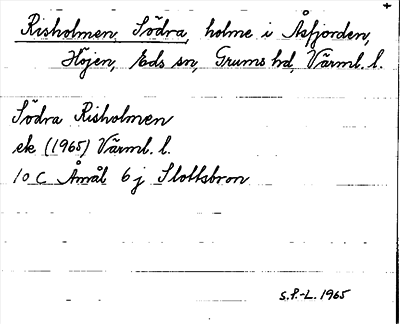 +
Risholmen, Södra, holme i Åsfjorden,
Höjen, Eds sn, Grums hd, Värml. l.
Södra Risholmen
ek (1965) Värml. l.
10 C Åmål 6 j Slottsbron
S.P.-L. 1965